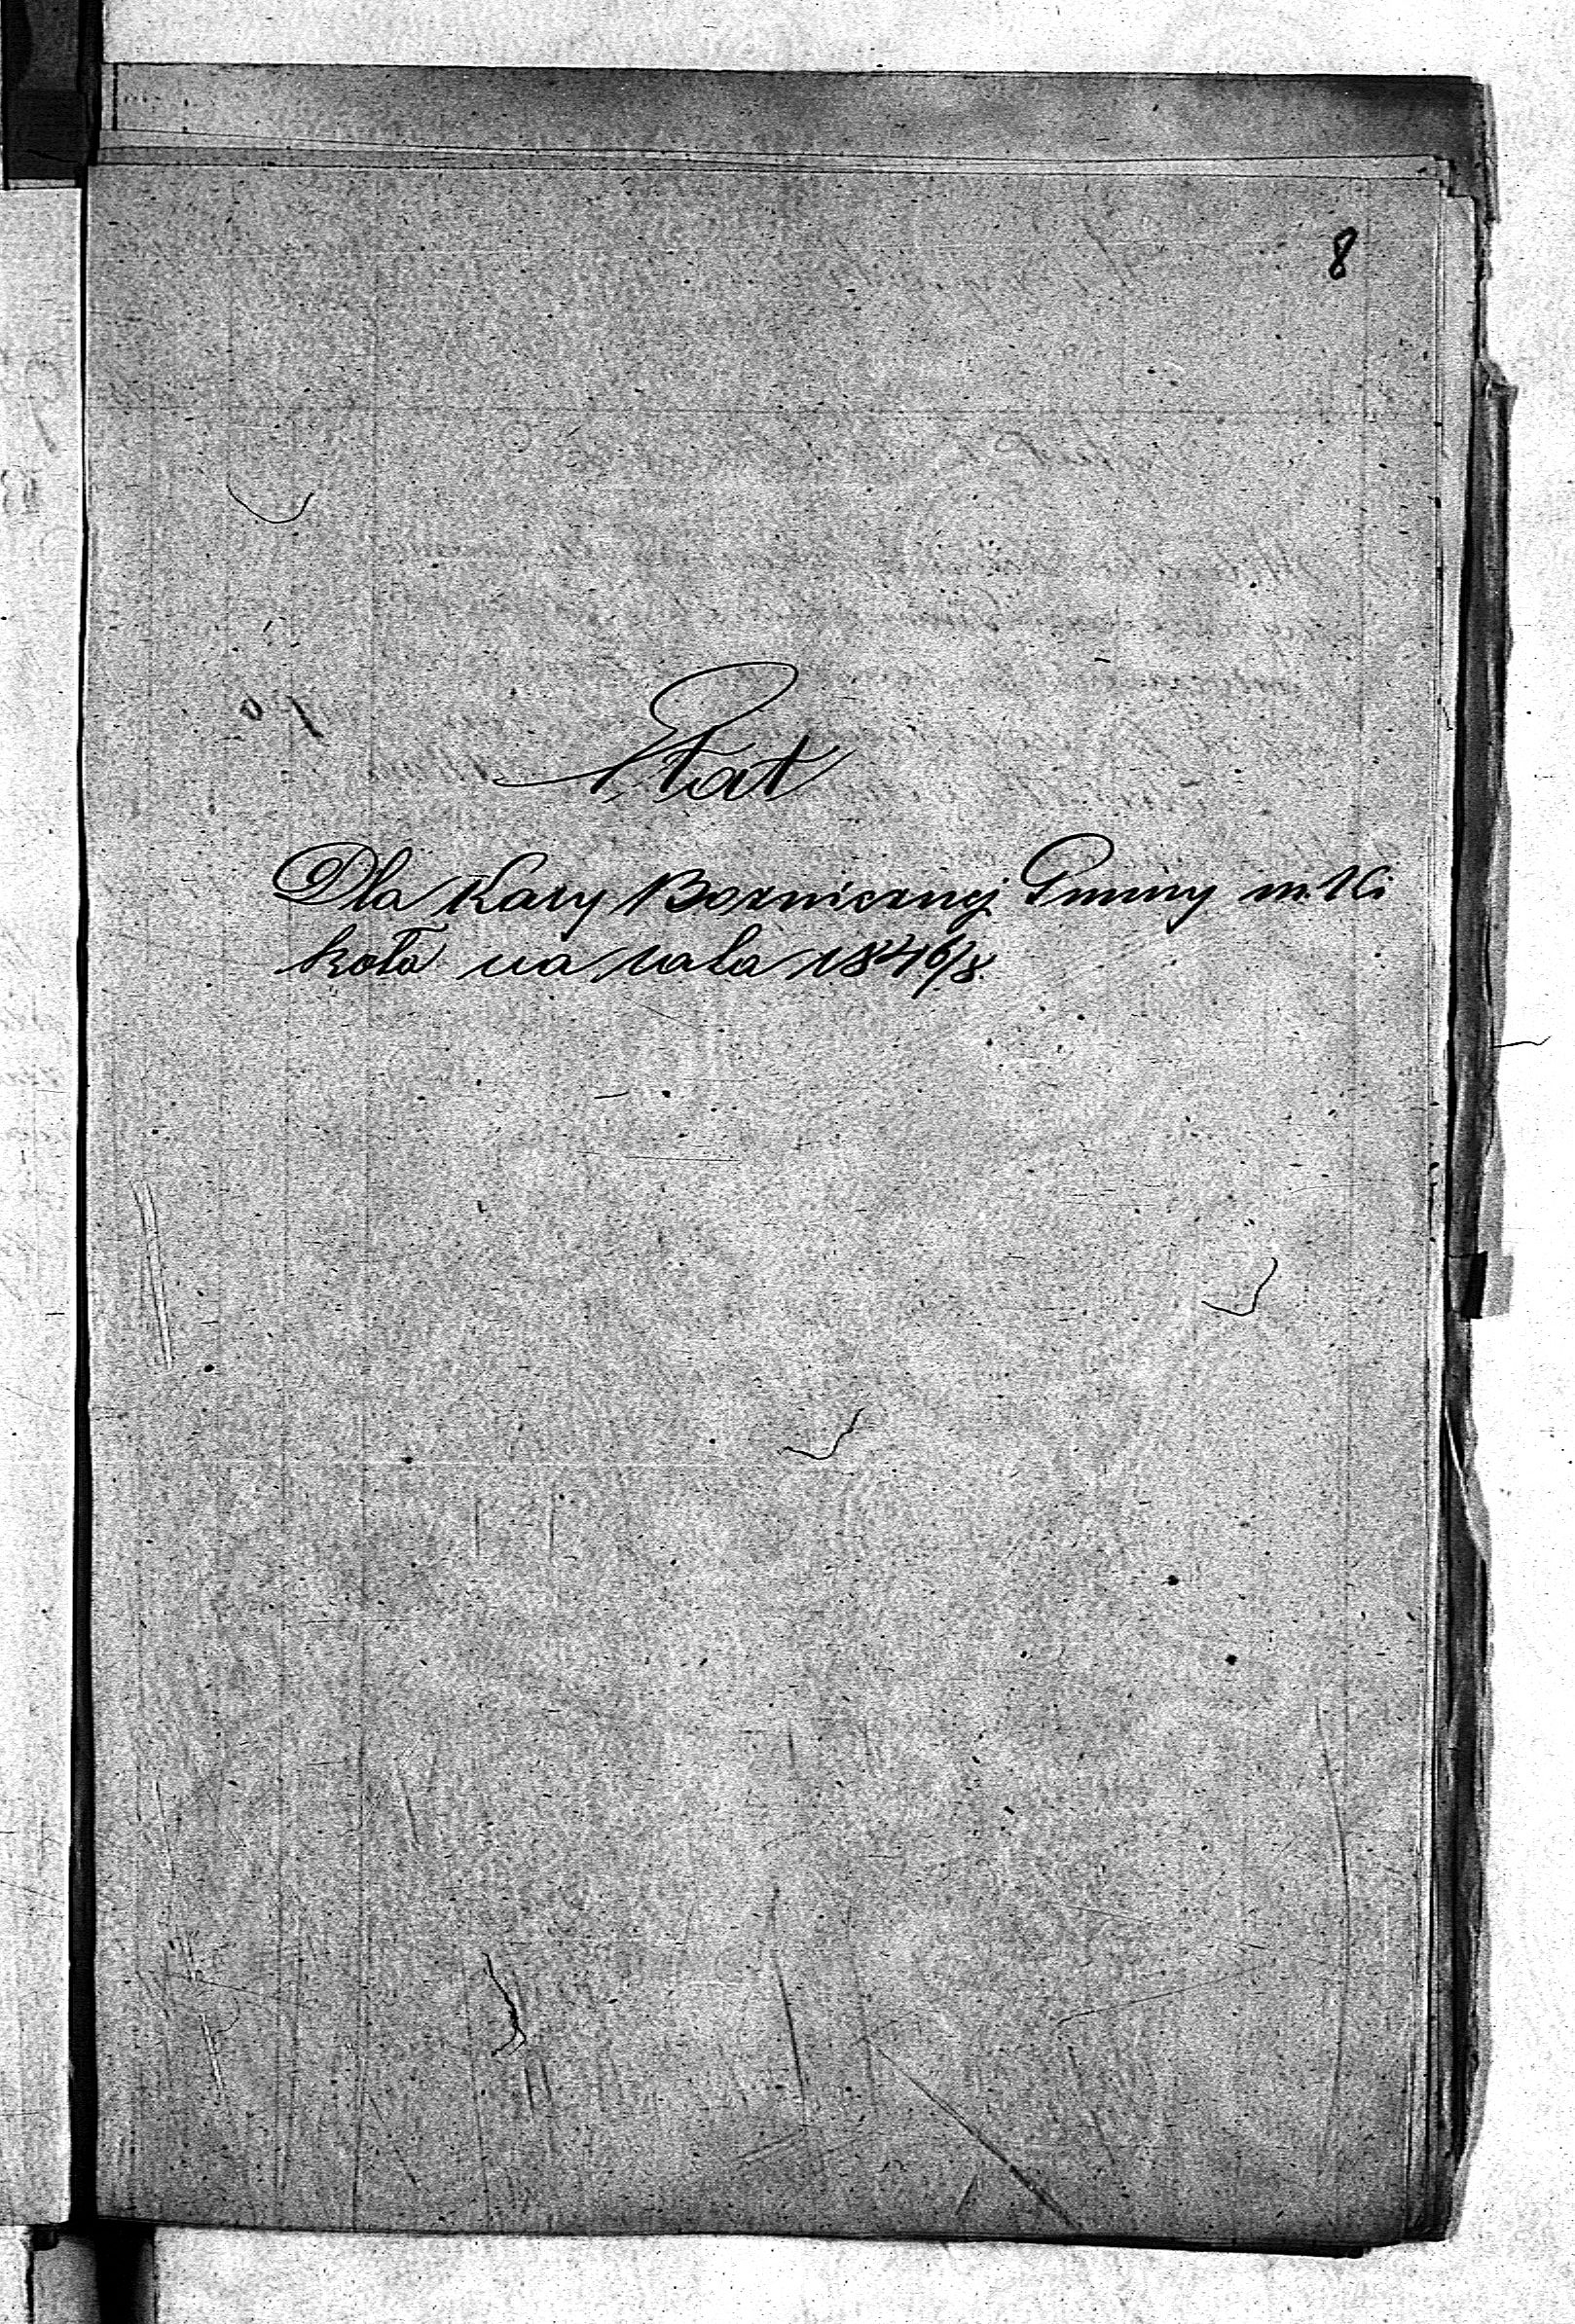 8
Etat
Dla Kasy Boznicznej Gminy m. Ki
koła na lata 1846/8.